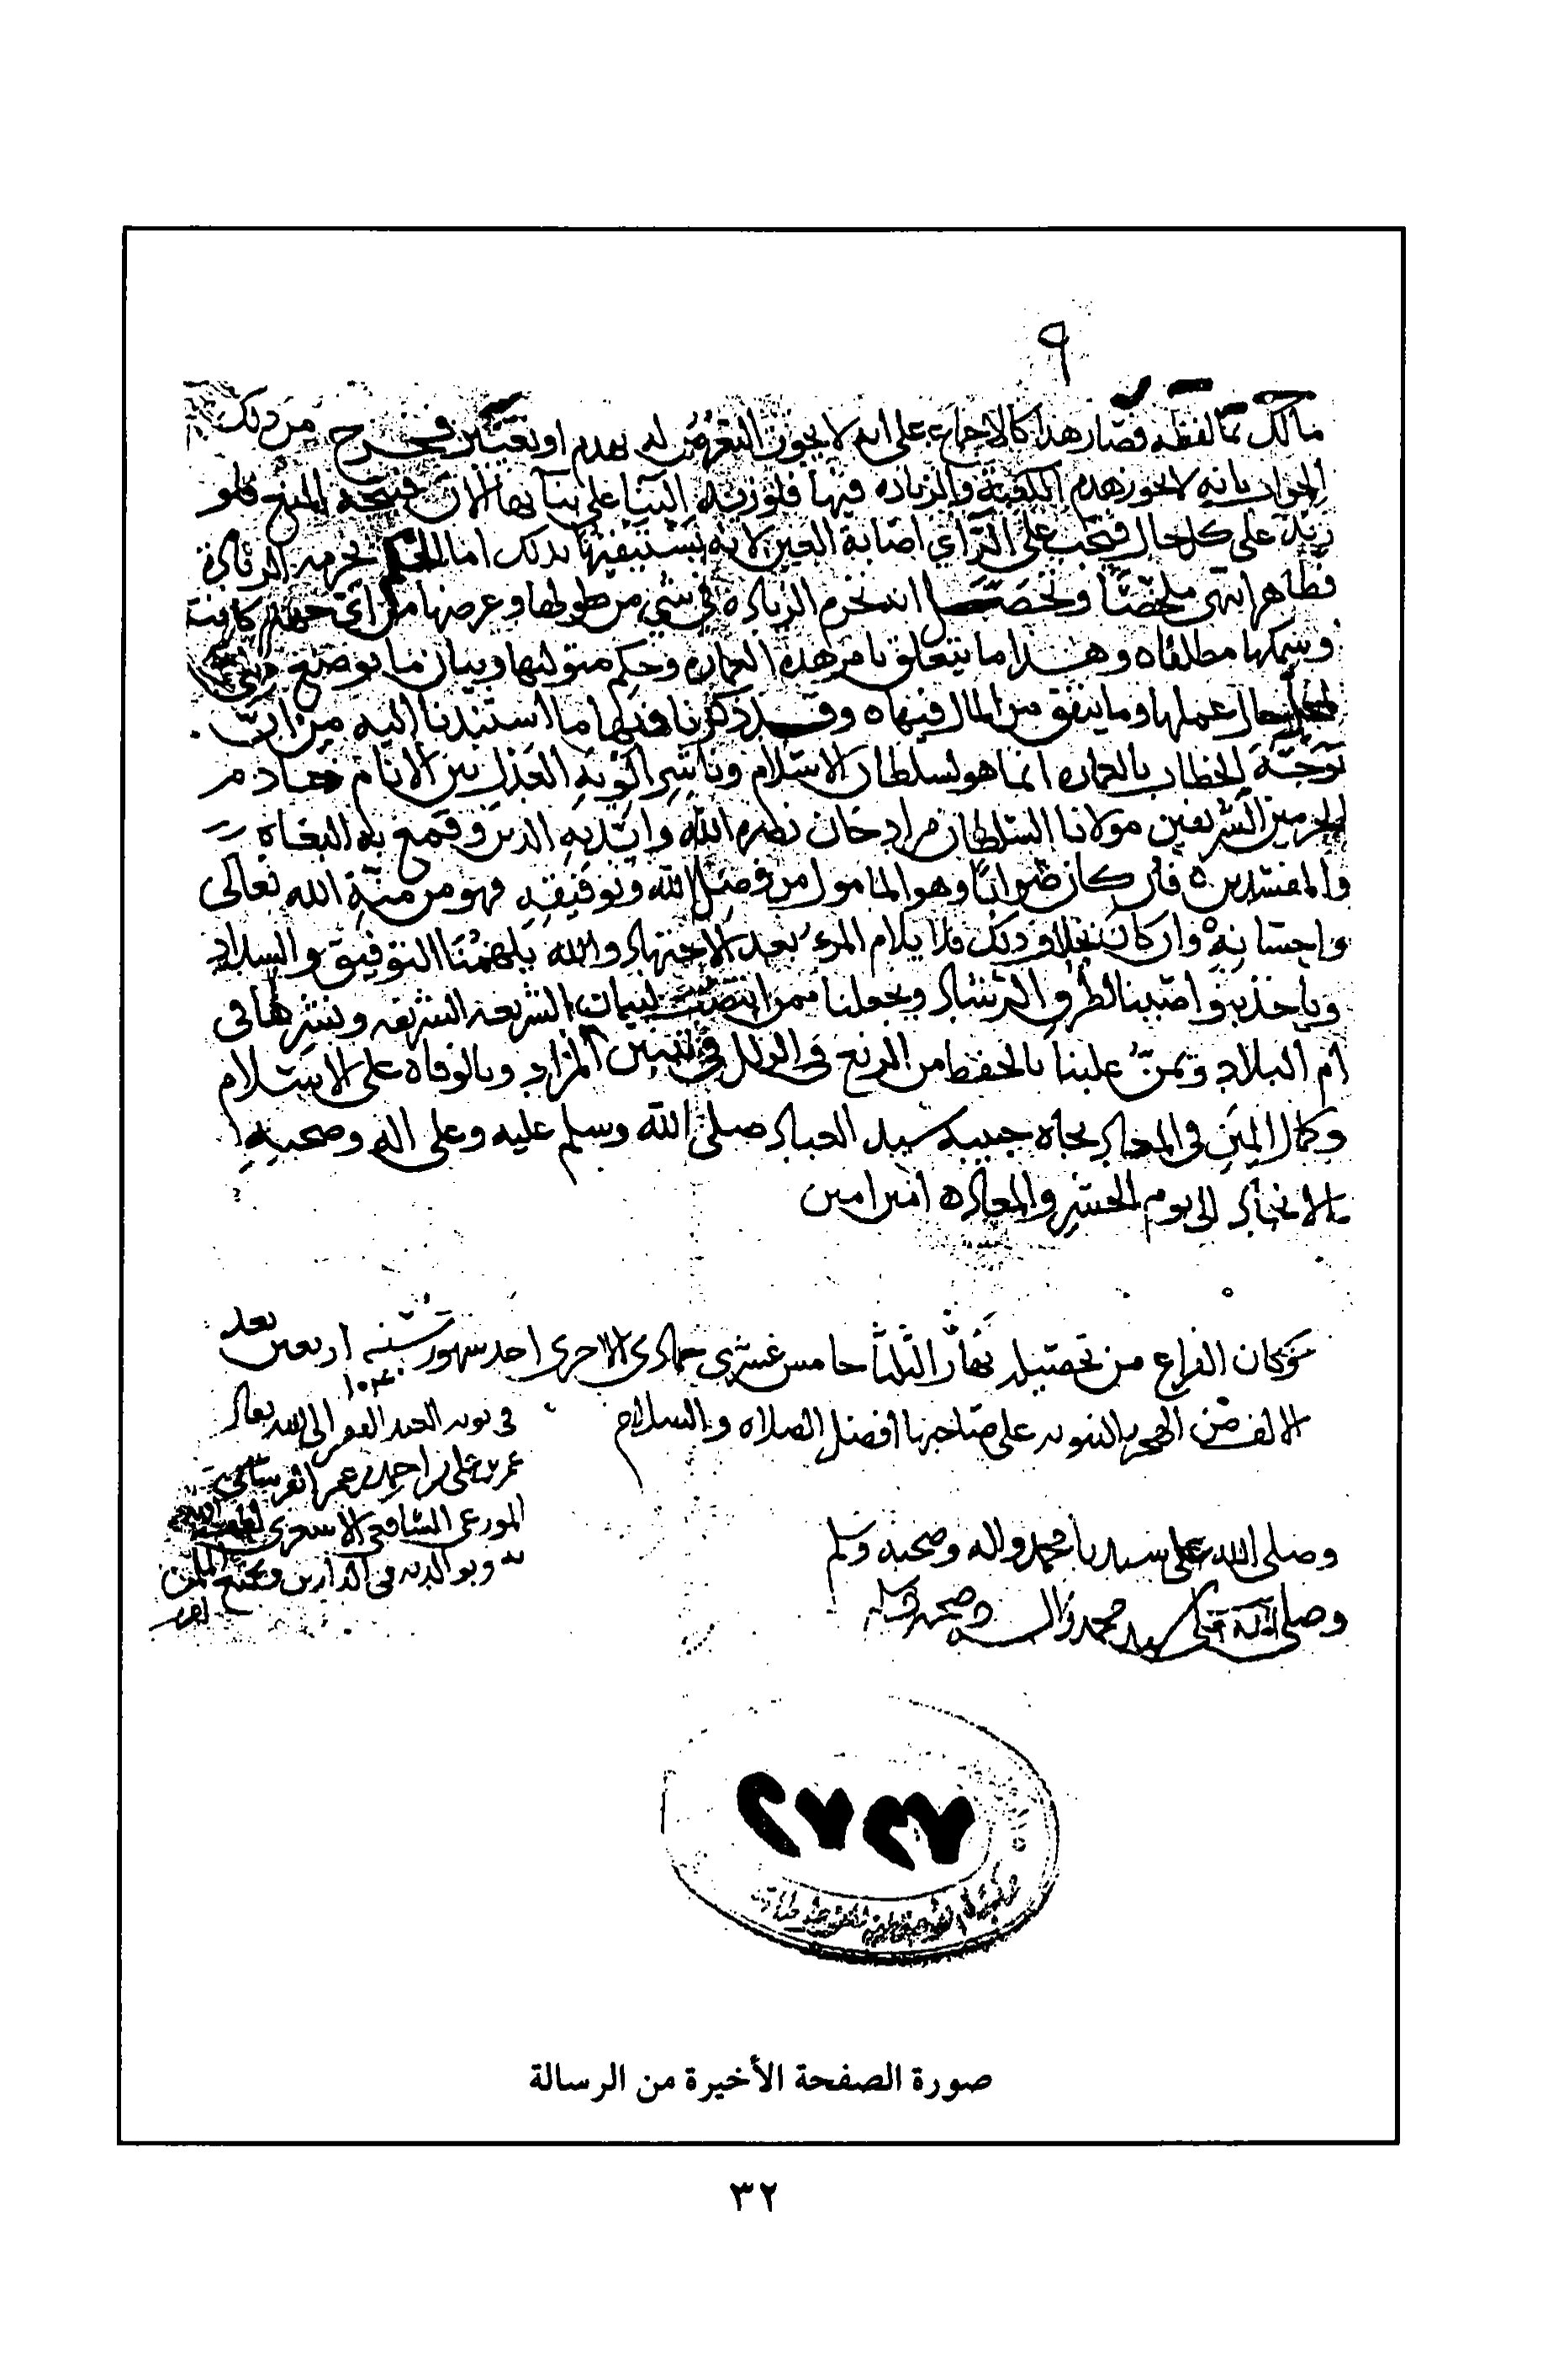 ٩
مالك مما لفظه فصار هذا كالاجماع على انه لا يجوز التعرض له بهدم او تغيير فخرج من ذلك
الجواب بانه لا يجوز هدم الكعبة والزياده فيها فلو زيد البنا على بنآيها الان فيتجه المنع فلو
زيد على كل حال فيجب على الرآي اصابة العين لانه يستيقنها بذلك اما الحكم بحرمه الزياده
فظاهر انتهى ملخصًا وتحصّل انه تحرم الزياده في شي من طولها وعرضها من اي جهه كانت
وسمكها مطلقاه وهذا ما يتعلق بامر هذه العماره وحكم متوليها وبيان ما يوضع
حال عملها وما ينفق من المال فيهاه وقد ذكرنا فيها ما استندنا اليه من ان
توجّه الخطاب بالعماره انما هو لسلطان الاسلام وناشر الوية العدل بين الانام خادم
الحرمين الشريفين مولانا السلطان مراد خان نصره الله وايّد به الدين وقمع به البغاه
والمفسدين ه فان كان صوابًا وهو المامول من فضل الله وتوفيقه فهو من منّة الله تعالى
واحسانه وان كان بخلاف ذلك فلا يلام المرء بعد الاجتهاد والله يلهمنا التوفيق والسداد
وياخذ بنواصينا لطرق الرشاد ويجعلنا ممن انتصب لبيان الشريعه الشريفه ونشرها في
ام البلاد ويمنّ علينا بالحفظ من الزيغ في الزلل في تبيين المراد وبالوفاه على الاسلام
وكمال المنن في المعاد بجاه حبيبه سيد العباد صلى الله وسلم عليه وعلى اله وصحبه
الامجاد الى يوم الحشر والمعاد ه امين امين
وكان الفراغ من تحصيله نهار الثلثا خامس عشري جمادى الاخرى احد شهور سنه اربعين بعد
١٠٤٠
الالف من الهجره النبويه على صاحبها افضل الصلاه والسلام
في نوبه العبد الفقير الى الله تعالى
عمر بن علي بن احمد بن عمر
الموزعي الشافعي الاشعري لطف الله
به وبوالديه في الدارين وبجميع المسلمين
امين
وصلى الله على سيدنا محمد واله وصحبه وسلم
وصلى الله على سيدنا محمد واله وصحبه وسلم
صورة الصفحة الأخيرة من الرسالة
٣٢